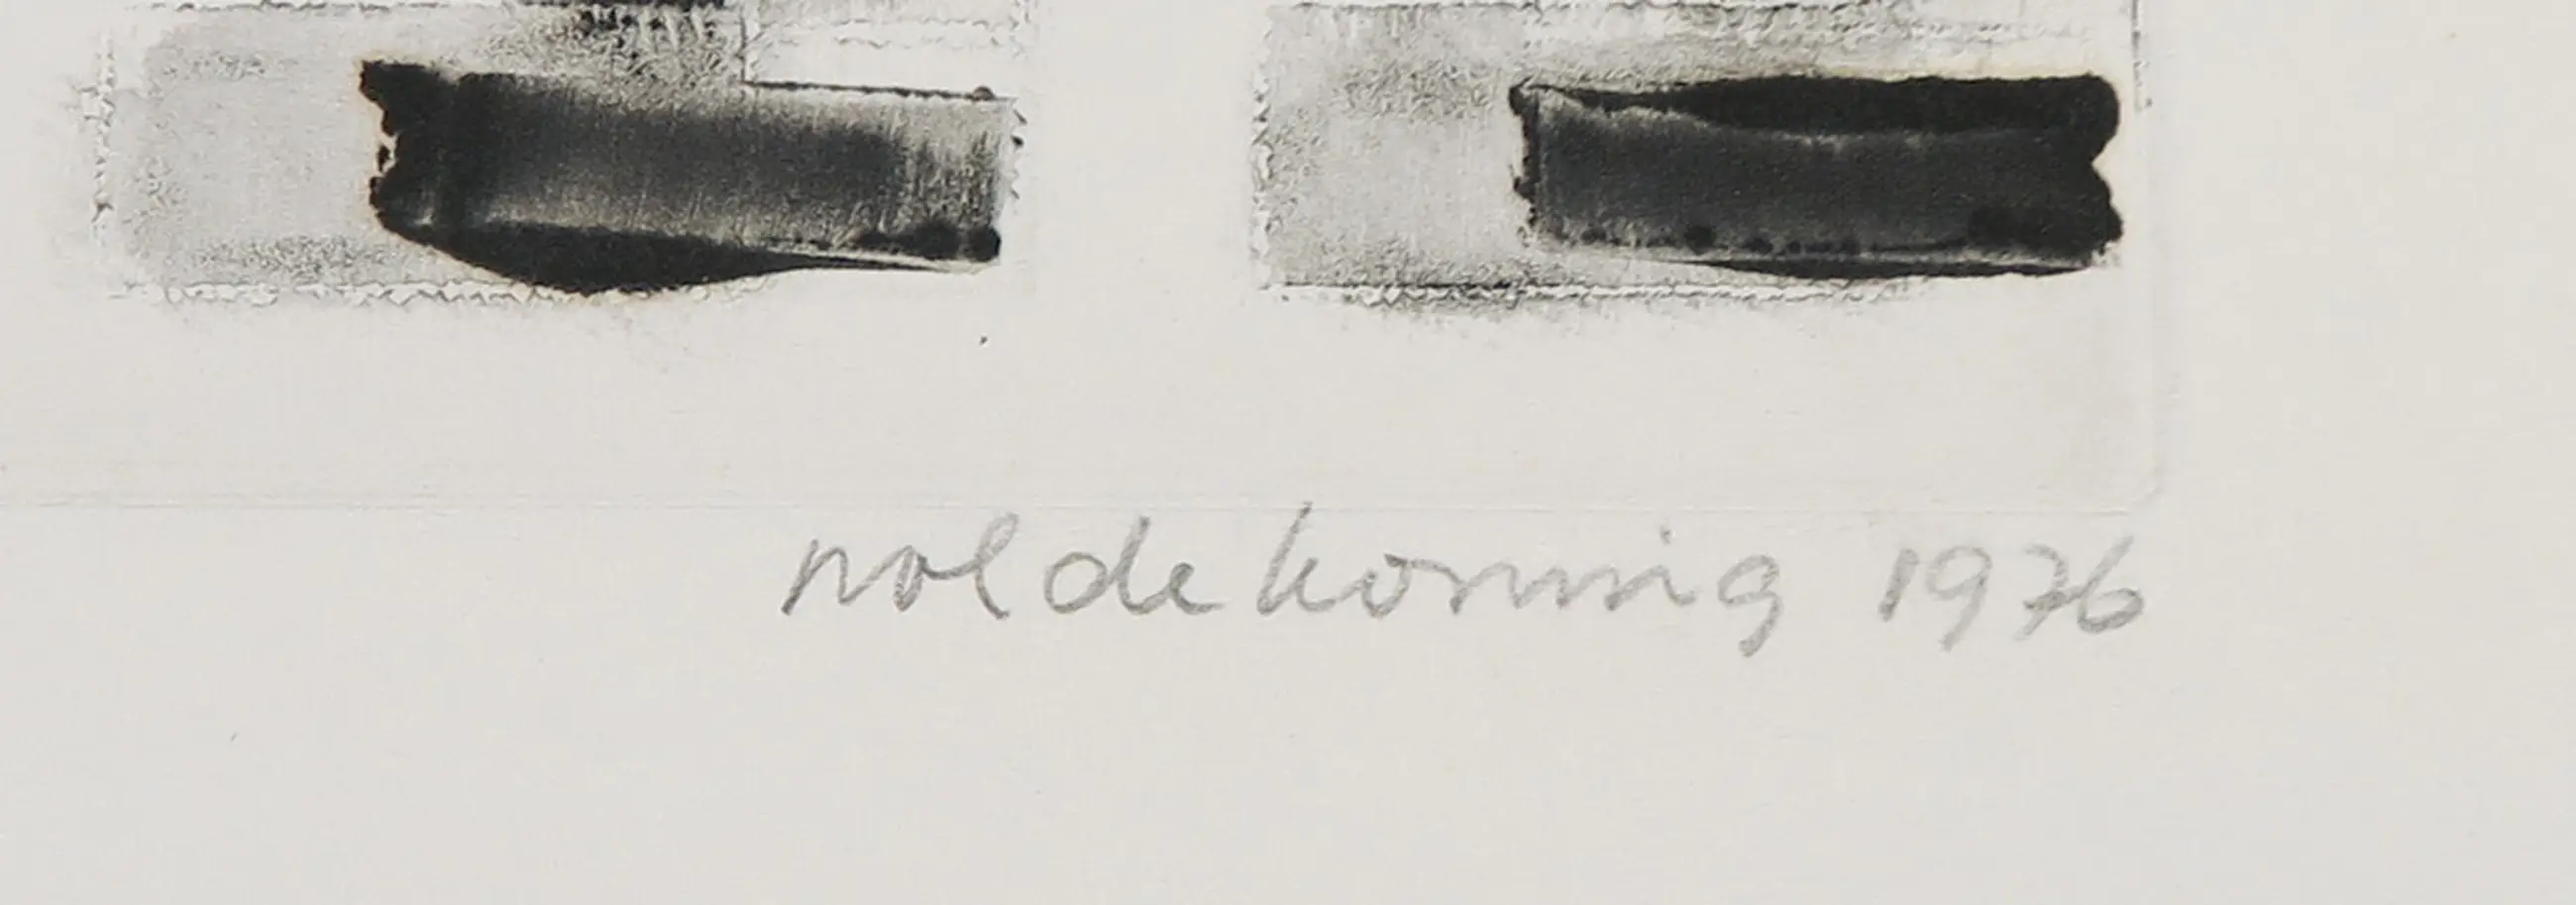 nol de koning 1976